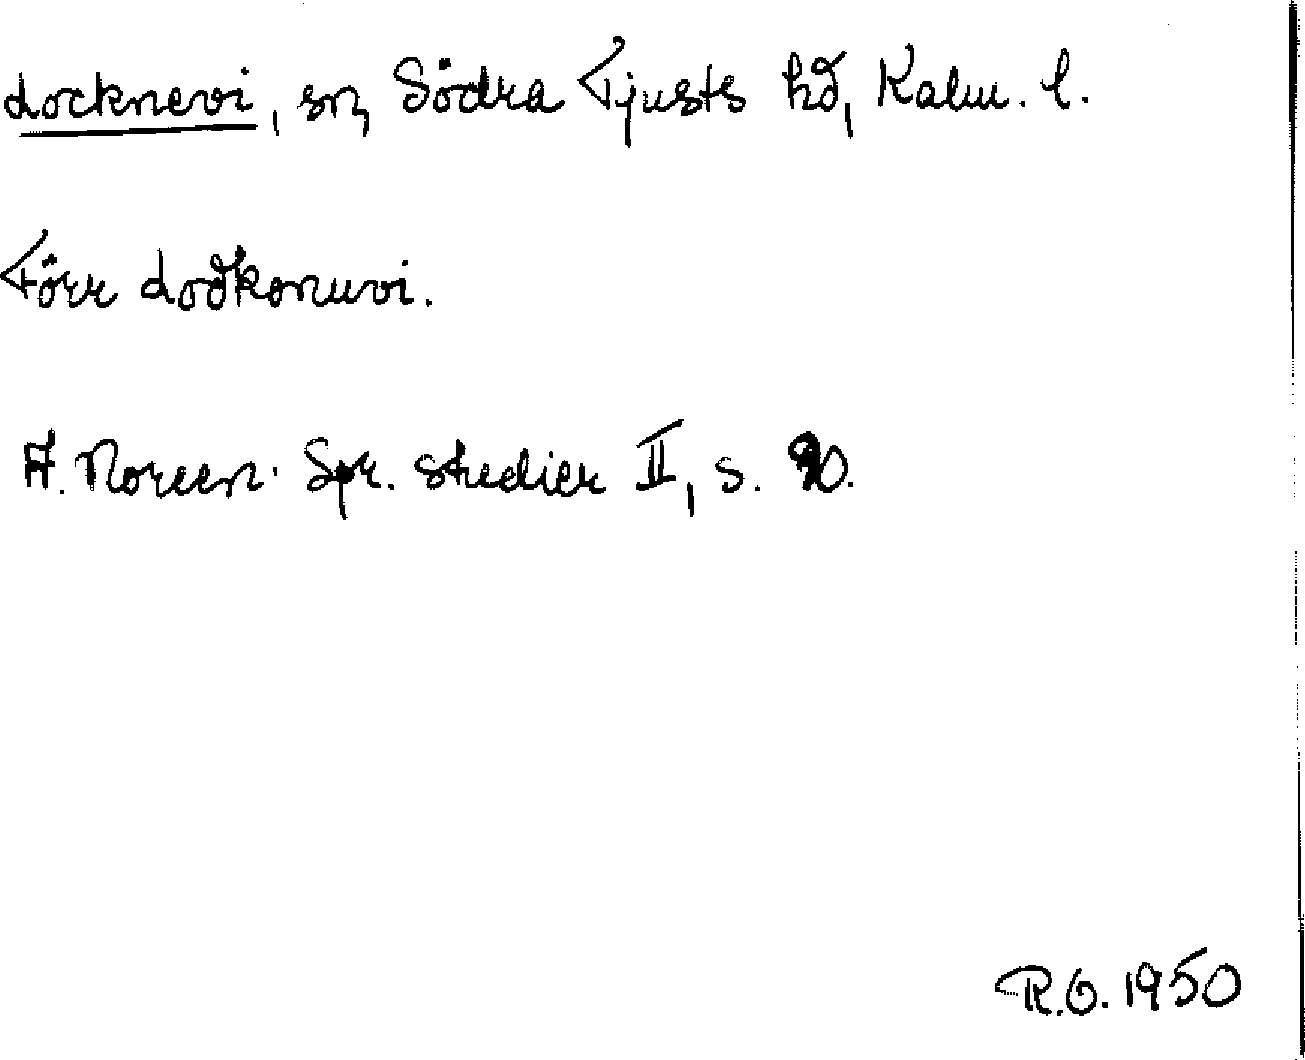 Locknevi, sn, Södra Tjusts hd, Kalm. l.
Förr Loðkonuvi.
A. Noreen. Spr. studier II, s. 20.
R.O. 1950